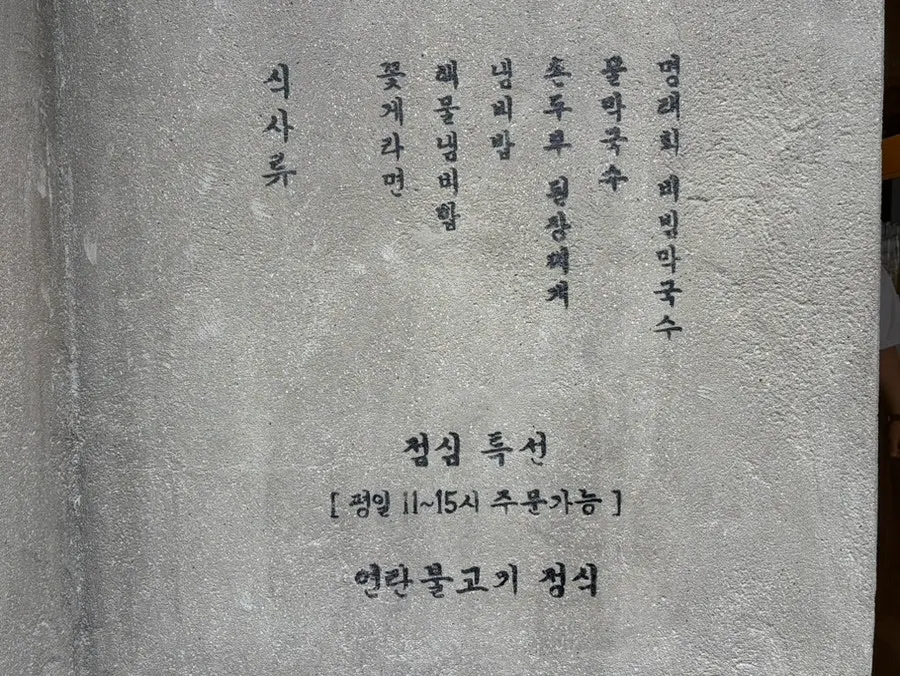 식사류
꽃게라면
해물냄비밥
냄비밥
촌두부 된장찌개
물막국수
명태회 비빔막국수
점심 특선
[ 평일 11~15시 주문가능 ]
연탄불고기 정식